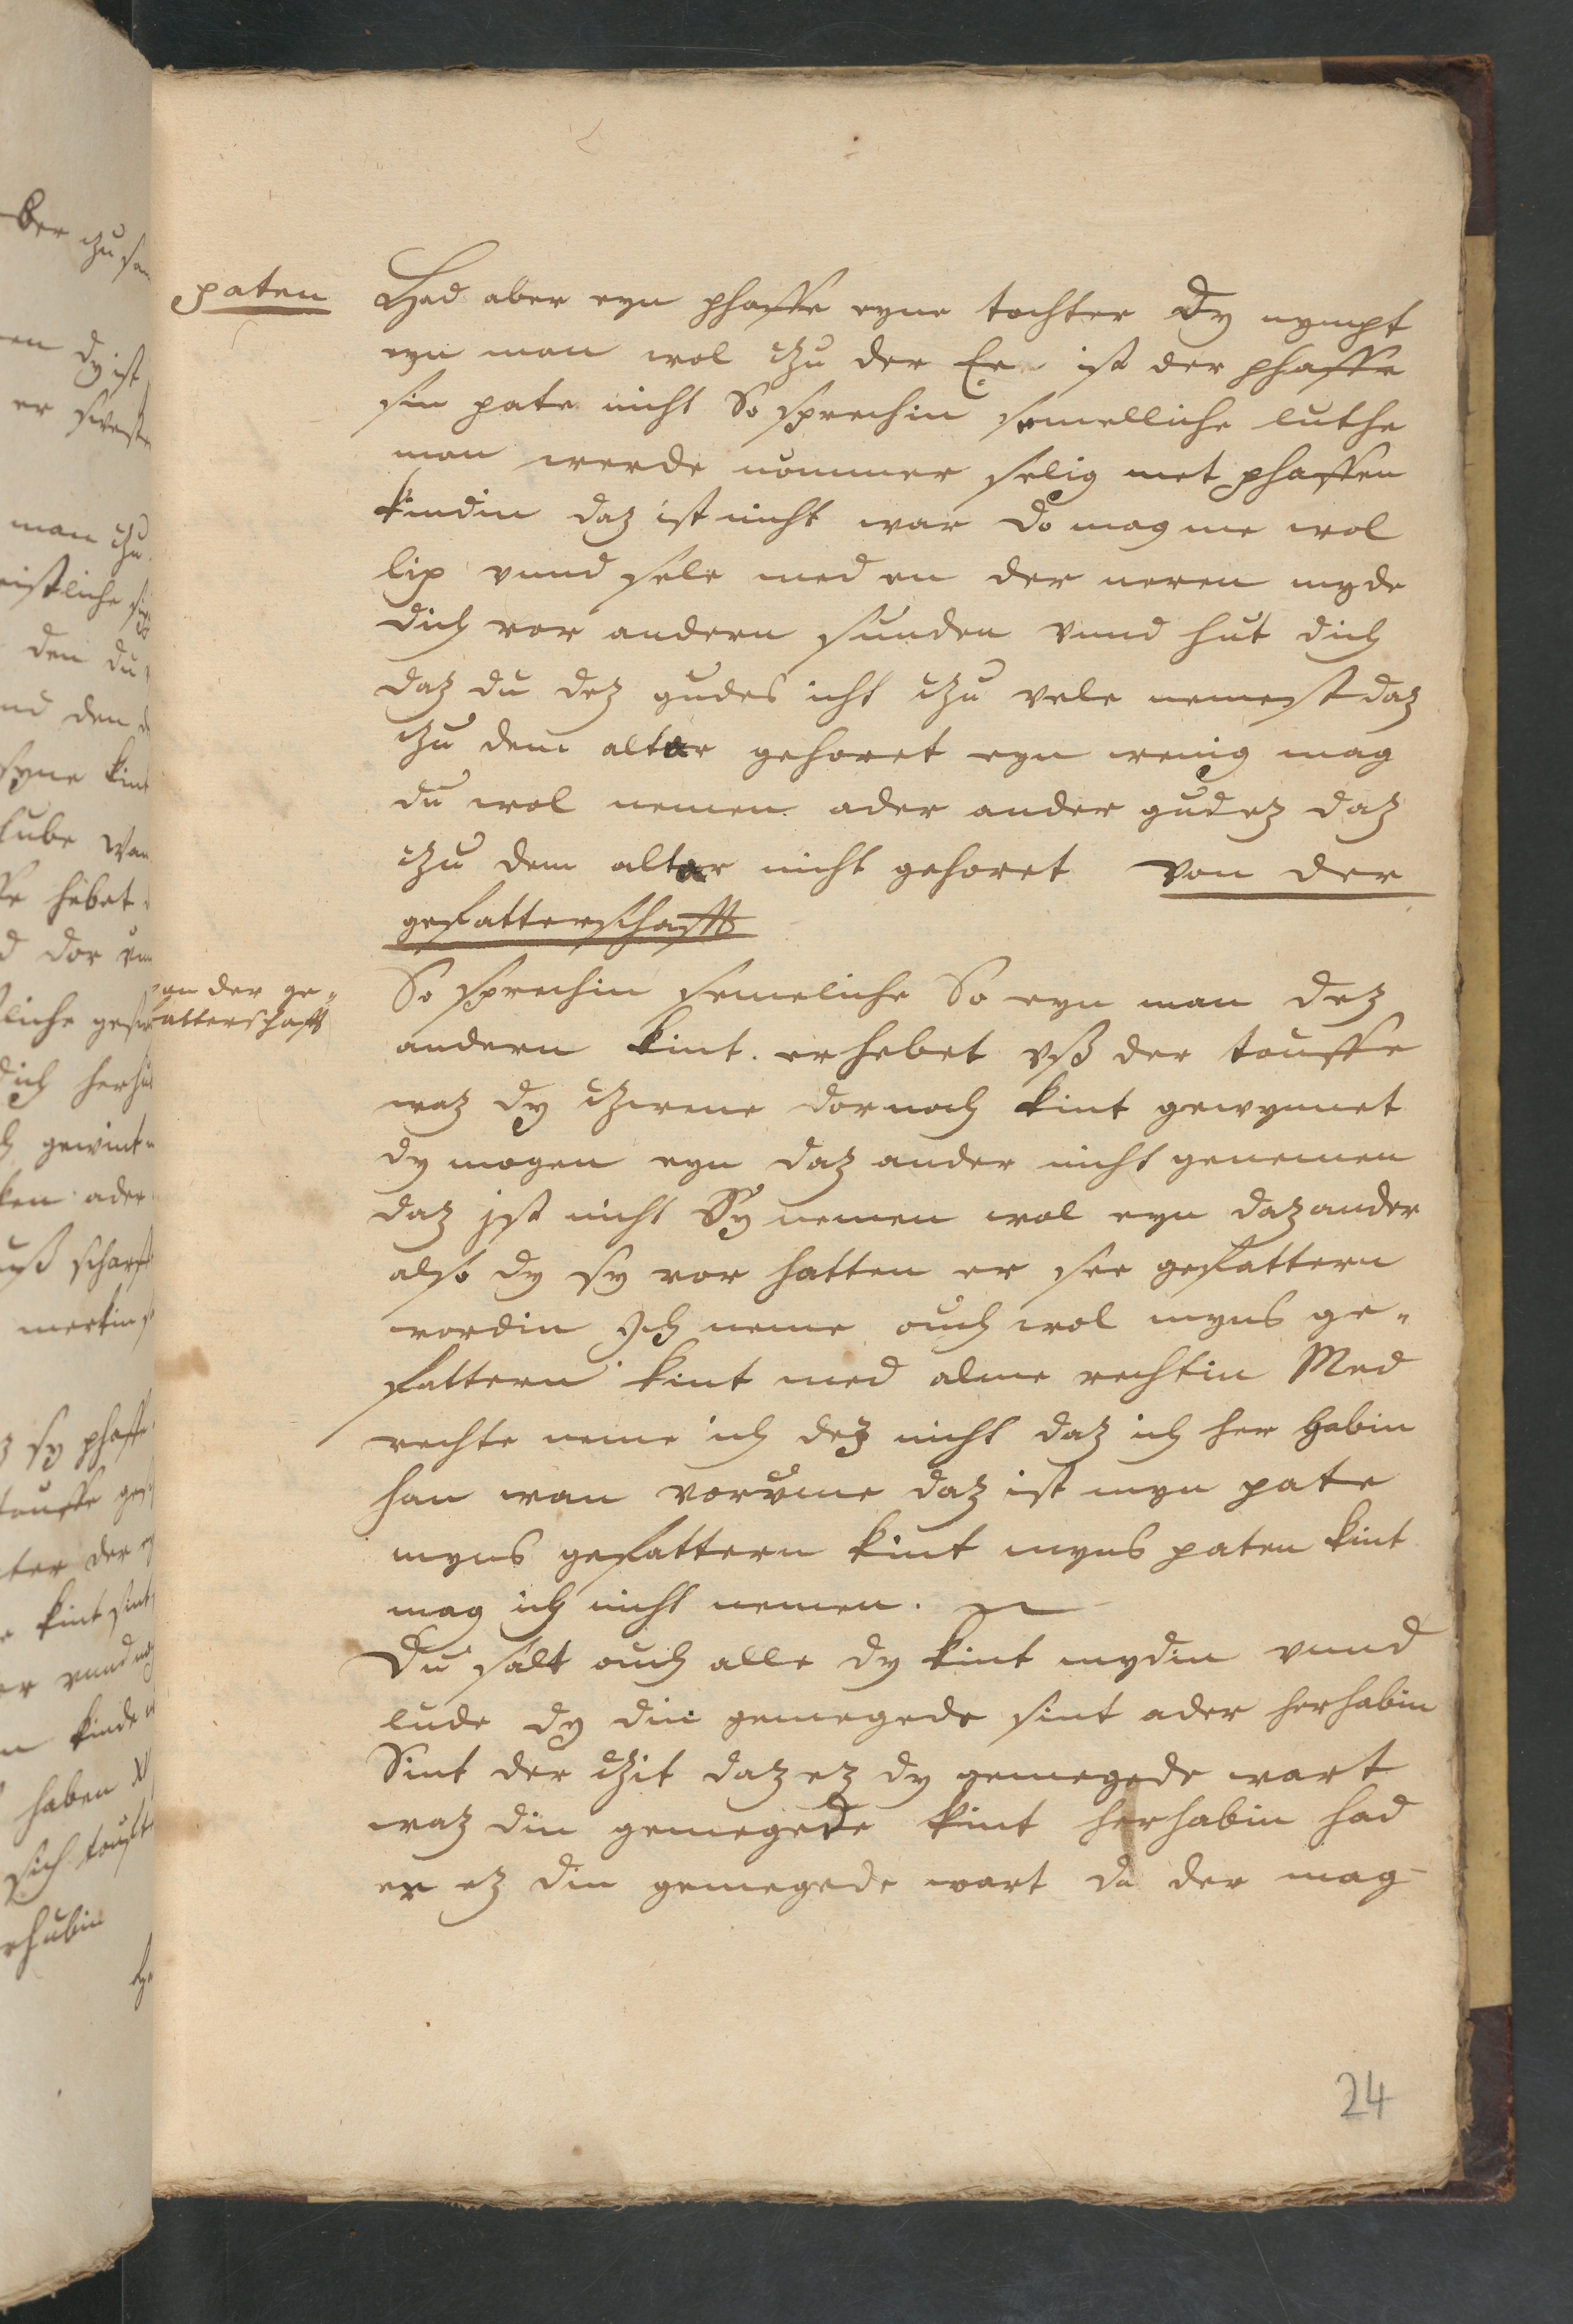 paten
Had aber eyn phaffe eyne tochter Dy nympt
eyn man wol czu der Ee ist der phaffe
sin pate nicht So sprechin semelliche luthe
man werde nommer selig met phaffen
kindin daz ist nicht war Do mag me wol
lip vnnd sele med en der neren myde
dich vor andern sunden vnnd hut dich
daz du dez gudes icht czu vele nemest daz
czu dem altar gehoret eyn wenig mag
du wol nemen ader ander gudez daz
czu dem altar nicht gehoret von der
gefatterschafft
von der ge-
fatterschafft
So sprechin semeliche So eyn man dez
andern kint erhebet vß der touffe
waz dy czwene dornoch kint gewynnet
dy mogen eyn daz ander nicht genemen
daz ist nicht Sy nemen wol eyn daz ander
also dy sy vor hatten er see gefattern
wordin Ich neme ouch wol myns ge-
fattern kint med alme rechtin Med
rechte neme ich dez nicht daz ich her habin
han wan vorvme daz ist myn pate
myns gefattern kint myns paten kint
mag ich nicht nemen.
Du salt ouch alle dy kint mydin vnnd
lude dy din gemegede sint ader herhabin
Sint der czit daz ez dy gemegede wart
waz din gemegede kint herhabin had
er ez din gemegede wart da der mag-
24